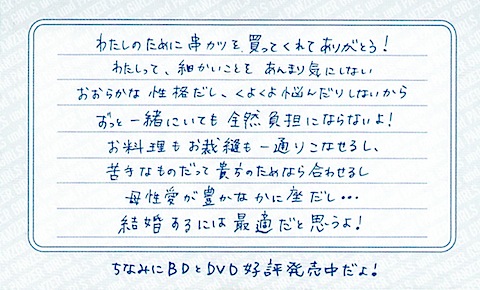 わたしのために串カツを買ってくれてありがとう!
わたしって、細かいことをあんまり気にしない
おおらかな性格だし、くよくよ悩んだりしないから
ずっと一緒にいても全然負担にならないよ!
お料理もお裁縫も一通りこなせるし、
苦手なものだって貴方のためなら合わせるし
母性愛が豊かなかに座だし…
結婚するには最適だと思うよ!
ちなみにBDとDVD好評発売中だよ!